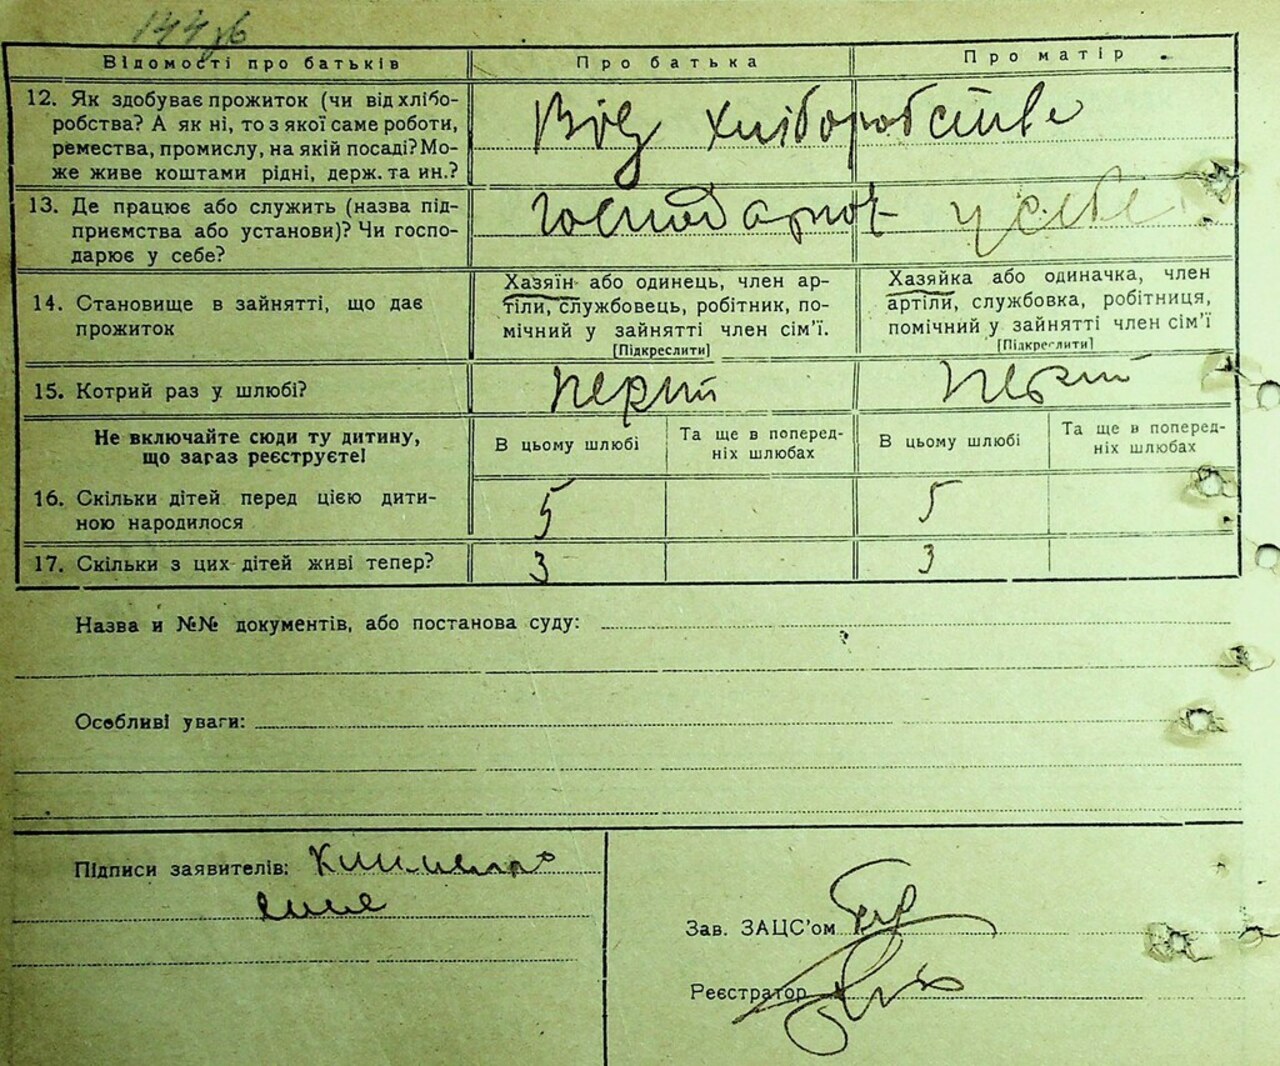 144зв
Відомості про батьків Про батька Про матір
12. Як здобуває прожиток (чи від хлібо-
робства? А як ні, то з якої саме роботи,
ремества, промислу, на якій посаді? Мо-
же живе коштами рідні, держ. та ин.?
Від хліборобства
13. Де працює або служить (назва під-
приємства або установи)? Чи госпо-
дарює у себе?
у себе
14. Становище в зайнятті, що дає
прожиток
Хазяїн або одинець, член ар-
тіли, службовець, робітник, по-
мічний у зайнятті член сім'ї.
[Підкреслити]
Хазяйка або одиначка, член
артіли, службовка, робітниця,
помічний у зайнятті член сім'ї
[Підкреслити]
15. Котрий раз у шлюбі?
Не включайте сюди ту дитину,
що загаз реєструєте!
В цьому шлюбі
Та ще в поперед-
ніх шлюбах
В цьому шлюбі
Та ще в поперед-
ніх шлюбах
16. Скільки дітей перед цією дити-
ною народилося
5 5
17. Скільки з цих дітей живі тепер? 3 3
Назва и №№ документів, або постанова суду:
Особливі уваги:
Підписи заявителів:
Зав. ЗАЦС'ом
Реєстратор